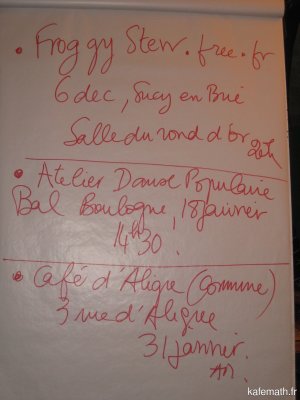 • Froggy Stew.free.fr
6 dec, Sucy en Brie
Salle du rond d'or 20h
• Atelier Danse Populaire
Bal Boulogne, 18 janvier
14h30.
• Café d'Aligre (Commune)
3 rue d'Aligre
31 janvier.
kafemath.fr